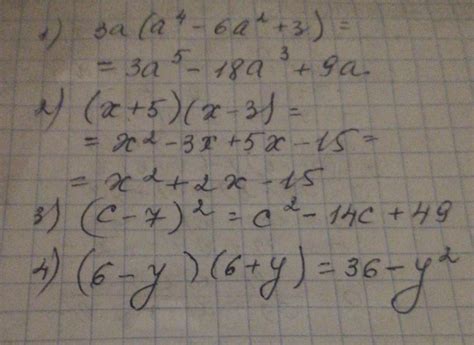 1) 3a(a⁴ - 6a² + 3) =
= 3a⁵ - 18a³ + 9a.
2) (x+5)(x-3) =
= x² - 3x + 5x - 15 =
= x² + 2x - 15
3) (c-7)² = c² - 14c + 49
4) (6-y)(6+y) = 36 - y²